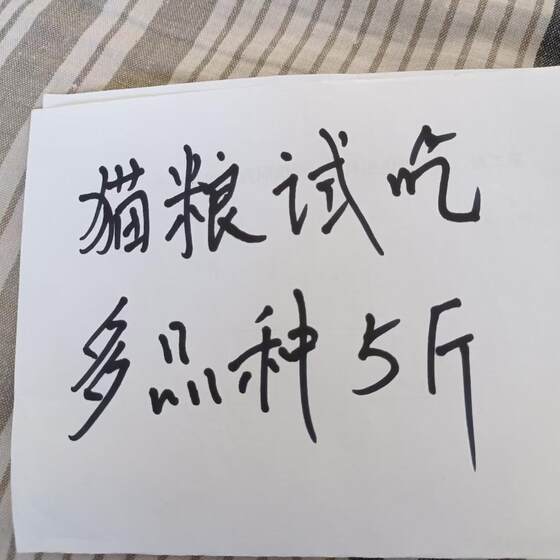 猫粮试吃
多品种5斤